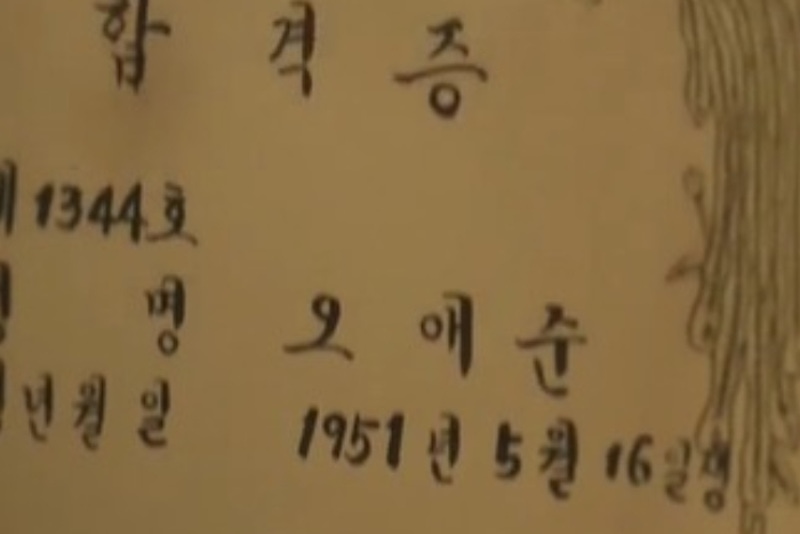 합 격 증
제 1344호
성 명 오 애 순
생년월일 1951년 5월 16일생